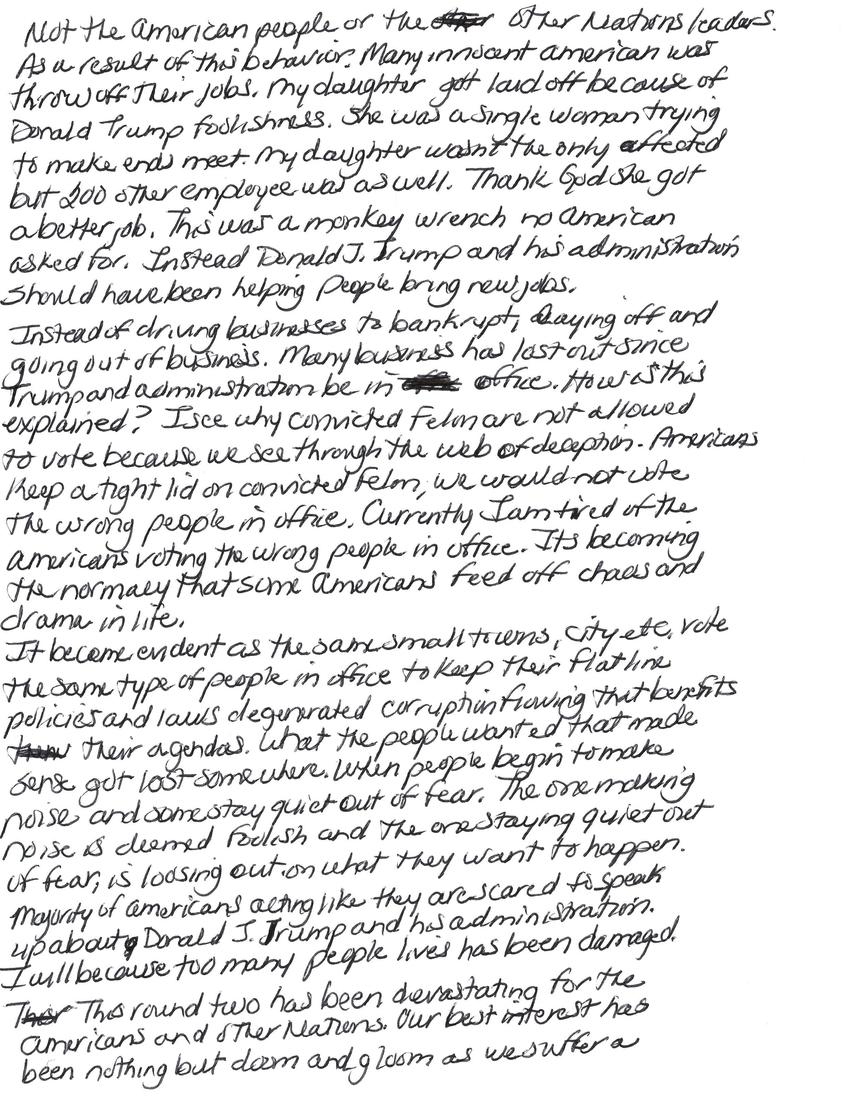 Not the American people or the other Nations leaders.
As a result of this behavior. Many innocent american was
throw off their jobs. My daughter got laid off because of
Donald Trump foolishness. She was a single woman trying
to make ends meet. My daughter wasn't the only affected
but 200 other employee was as well. Thank God she got
a better job. This was a monkey wrench no American
asked for. Instead Donald J. Trump and his administration
should have been helping people bring new jobs.
Instead of driving businesses to bankrupt, Laying off and
going out of business. Many business has lost out since
Trump and administration be in office. How is this
explained? I see why convicted felon are not allowed
to vote because we see through the web of deception. Americans
Keep a tight lid on convicted felon, we would not vote
the wrong people in office. Currently I am tired of the
americans voting the wrong people in office. Its becoming
the normacy that some Americans feed off chaos and
drama in life.
It become evident as the same small towns, city etc, vote
the same type of people in office to keep their flatline
policies and laws degenerated corruption flowing that benefits
their agendas. What the people wanted that made
sense got lost somewhere. When people begin to make
noise and some stay quiet out of fear. The one making
noise is deemed foolish and the one staying quiet out
of fear, is loosing out on what they want to happen.
Majority of americans acting like they are scared to speak
up about Donald J. Trump and his administration.
I will because too many people lives has been damaged.
This round two has been devastating for the
americans and other Nations. Our best interest has
been nothing but doom and gloom as we suffer a